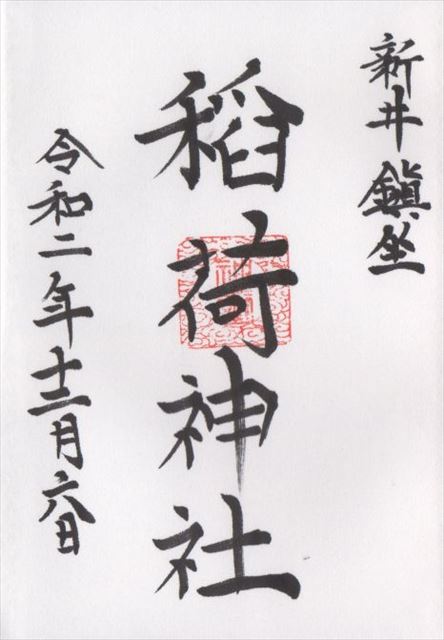 新井鎮坐
稲荷神社
令和二年十二月六日